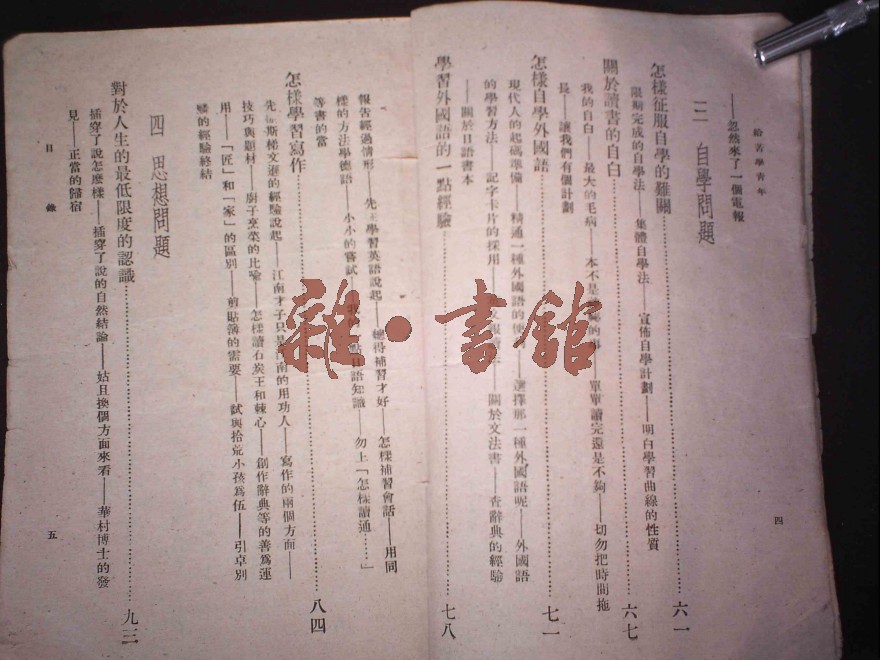 給苦學青年
——忽然來了一個電報
三 自學問題
怎樣征服自學的難關……六一
限期完成的自學法——集體自學法——宣佈自學計劃——明白學習曲線的性質
關於讀書的自白……六七
我的自白——最大的毛病——本不是 的 ——單單讀完還是不夠——切勿把時間拖
長——讓我們有個計劃
怎樣自學外國語……七一
現代人的起碼準備——精通一種外國語的 ——選擇那一種外國語呢——外國語
的學習方法——記字卡片的採用—— ——關於文法書——查辭典的經驗
——關於日語書本
學習外國語的一點經驗……七八
四
報告經過情形——先從學習英語說起——總得補習才好——怎樣補習會話——用同
樣的方法學德語——小小的嘗試—— 點日語知識——勿上「怎樣讀通……」
等書的當
怎樣學習寫作……八四
先從斯梯文遜的經驗說起——江南才子只是 南的用功人——寫作的兩個方面——
技巧與題材——廚子烹菜的比喻——怎樣讀石炭王和棘心——創作辭典等的善爲運
用——「匠」和「家」的區別——剪貼簿的需要——試與拾荒小孩爲伍——引卓別
麟的經驗終結
四 思想問題
對於人生的最低限度的認識……九三
插穿了說怎麼樣——插穿了說的自然結論——姑且換個方面來看——華村博士的發
見——正當的歸宿
目 錄
五
雜·書館